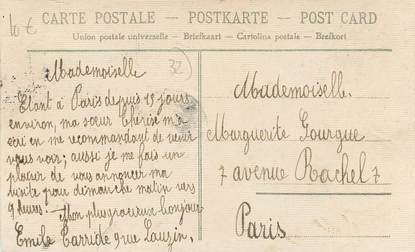 10 €
CARTE POSTALE – POSTKARTE – POST CARD
Union postale universelle – Briefkaart – Cartolina postale – Brefkort
32
Mademoiselle
Etant à Paris depuis 15 jours
environ, ma sœur Thérèse m'a
écrit en me recommandant de venir
vous voir; aussi je me fais un
plaisir de vous annoncer ma
visite pour dimanche matin vers
9 heures. Mon plus gracieux bonjour
Emile Tarride 9 rue Lauzin.
Mademoiselle.
Marguerite Gourgue
7 avenue Rachel 7
Paris